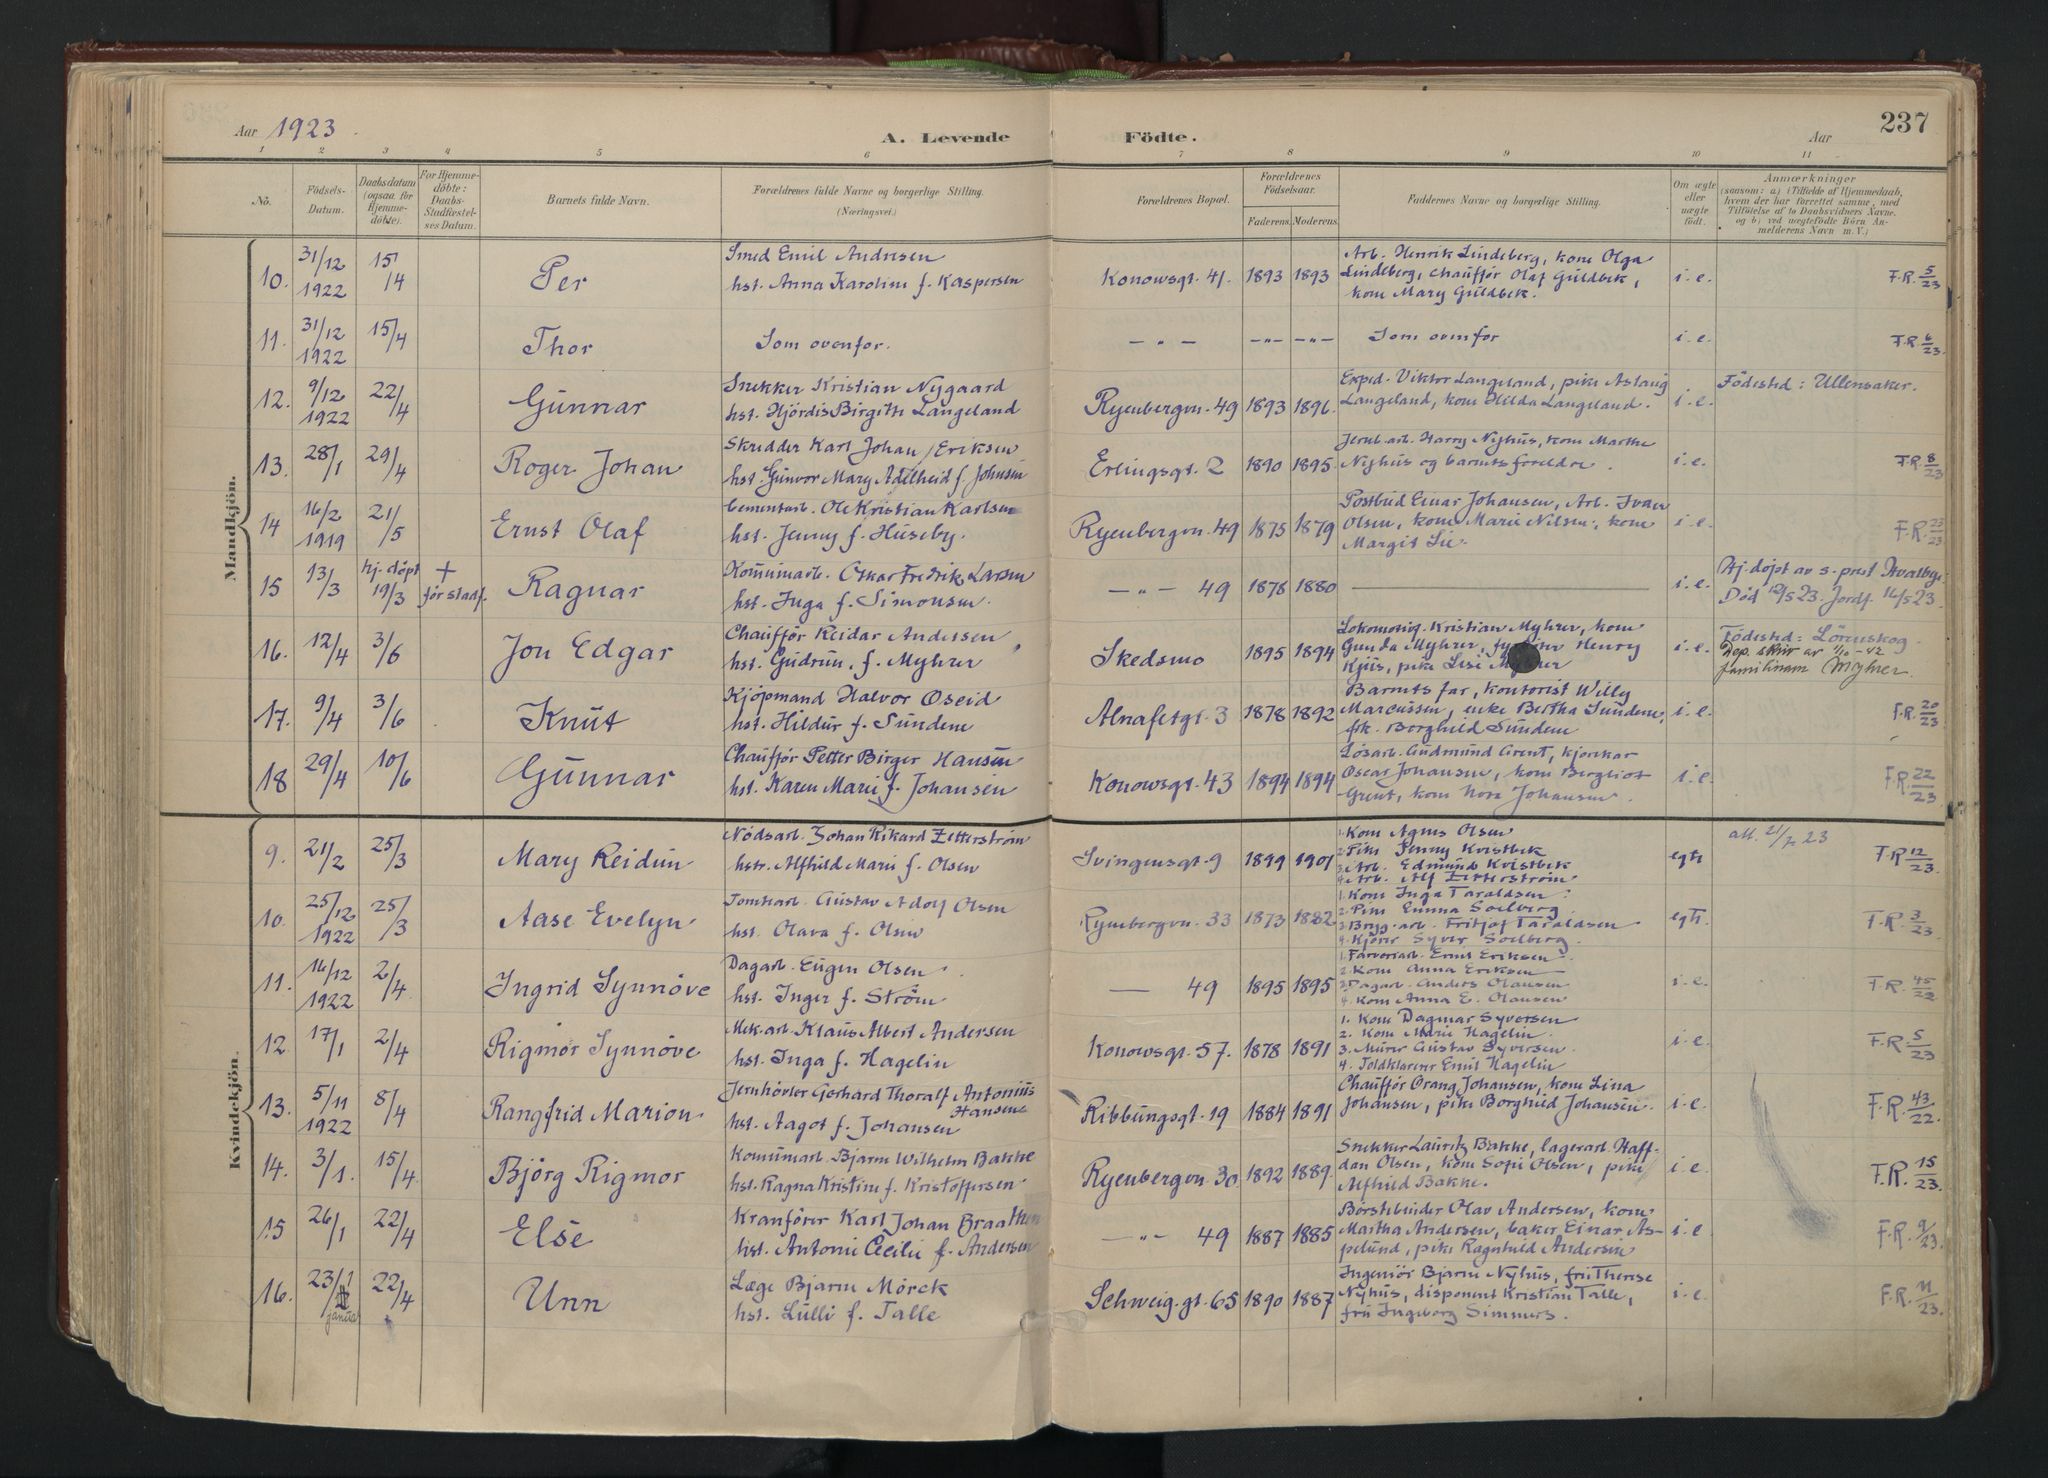 Aar 1923.
A. Levende Födte.
Aar
237
1 2 3 4 5 6 7 8 9 10 11
No.
Födsels-Datum.
Daabsdatum (ogsaa for Hjemme-döbte).
For Hjemme-döbte: Daabs-Stadfæstel-ses Datum.
Barnets fulde Navn.
Forældrenes fulde Navne og borgerlige Stilling. (Næringsvei.)
Forældrenes Bopæl.
Forældrenes Födselsaar.
Faderens. Moderens.
Faddernes Navne og borgerlige Stilling.
Om ægte eller uægte födt.
Anmærkninger
(saasom: a) i Tilfælde af Hjemmedaab, hvem der har forrettet samme, med Tilföielse af to Daabsvidners Navne, og b) ved uægtefödte Börn An-melderens Navn m. V.)
Mandkjön.
10. 31/12 1922 15/4 Per
Smed Emil Andresen
hst. Anna Karoline f. Kaspersen
Konowsgt. 41. 1893 1893
Arb. Henrik Lindeberg, kone Olga
Lindeberg, Chaufför Olaf Guldbek,
kone Mary Guldbek.
i.e. F.R. 5/23
11. 31/12 1922 15/4 Thor
Som ovenfor.
— " — —"— —"—
Som ovenfor
i.e. F.R. 6/23.
12. 9/12 1922 22/4 Gunnar
Snekker Kristian Nygaard
hst. Hjördis Birgith Langeland
Ryenbergvn. 49 1893 1896.
Exped. Viktor Langeland, pike Aslaug
Langeland, kone Hilda Langeland.
i.e. Födested: Ullensaker.
13. 28/1 29/4 Roger Johan
Skredder Karl Johan Eriksen
hst. Gunvor Mary Adelheid f. Johnsen
Erlingsgt. 2 1890 1895.
Jernb.arb. Harry Nyhus, kone Marthe
Nyhus og barnets foreldre.
i.e. F.R. 8/23
14 16/2 1919 21/5 Ernst Olaf
Cementarb. Ole Kristian Karlsen
hst. Jenny f. Huseby.
Ryenbergvn. 49 1875 1879
Postbud Einar Johansen, Arb. Ivaer
Olsen, kone Marie Nilsen, kone
Margit Lie.
i.e. F.R. 23/23
15 13/3 hj. döpt 19/3 + för stadf. Ragnar
Kommunarb. Oskar Fredrik Larsen
hst. Inga f. Simonsen.
—"— 49 1878 1880
i.e. Hj. döpt av s. prest Hvalbye.
Död 12/5 23. Jordf. 16/5 23.
16. 12/4 3/6 Jon Edgar
Chaufför Reidar Andersen
hst. Gudrun, f. Myhrer
Skedsmo 1895 1894
Lokomotiv. Kristian Myhrer, kone
Gunda Myhrer, Henry
pike Lise Myhrer
i.e. Födested: Lörenskog.
Dep. skriv av 1/10-42
familienavn Myhrer.
17. 9/4 3/6 Knut
Kjöpmand Halvor Oseid
hst. Hildur f. Sundene
Alnafetgt. 3 1878 1892
Barnets far, kontorist Willy
Marcussen, enke Bertha Sundene,
frk. Borghild Sundene
i.e. F.R. 20/23
18 29/4 10/6 Gunnar
Chaufför Petter Birger Hansen
hst. Karen Marie f. Johansen
Konowsgt. 43 1894 1894
Lösarb. Gudmund Grent, kjörekar
Oscar Johansen, kone Bergliot
Grent, kone Nora Johansen.
i.e. F.R. 22/23
Kvindekjön.
9. 21/2 25/3 Mary Reidun
Nödsarb. Johan Rikard Zetterström
hstr. Alfhild Marie f. Olsen
Svingensgt. 9 1899 1901
1. Kone Agnes Olsen
2. Pike Jenny Kvistbek
3. Arb. Edmund Kvistbek
4. Arb. Alf Zetterström
egte att. 21/7 23 F.R 12/23.
10. 25/12 1922 25/3 Aase Evelyn
Tomtearb. Gustav Adolf Olsen
hst. Olava f. Olsen
Ryenbergvn. 33 1873 1882
1. Kone Inga Taraldsen
2. Pike Emma Soelberg
3. Brygg.arb. Fritjof Taraldsen
4. Kjörer Syver Soelberg.
egte. F.R. 3/23
11. 16/12 1922 2/4 Ingrid Synnöve
Dagarb. Eugen Olsen
hst. Inger f. Ström
— 49 1895 1895
1. Farveriarb. Ernst Eriksen
2. Kone Anna Eriksen
3. Dagarb. Anders Olausen
4. Kone Anna E. Olausen
i.e. F.R. 45/22
12 17/1 2/4 Rigmor Synnöve
Mek.arb. Klaus Albert Andersen
hst. Inga f. Hagelin
Konowsgt. 57. 1878 1891
1. Kone Dagmar Syversen
2. Kone Marie Hagelin
3. Murer Gustav Syversen
4. Toldklarerer Emil Hagelin
i.e. F.R. 5/23
13. 5/11 1922 8/4 Rangfrid Marion
Jernhövler Gerhard Thoralf Antonius Hansen
hst. Aagot f. Johansen
Ribbungsgt. 19 1884 1891
Chaufför Orang Johansen, kone Lina
Johansen, pike Borghild Johansen.
i.e. F.R. 43/22.
14. 3/1. 15/4 Björg Rigmor
Kommunarb. Bjarne Wilhelm Bakke
hst. Ragna Kristine f. Kristoffersen
Ryenbergvn. 30. 1892 1889.
Snekker Lauritz Bakke, lagerarb. Half-
dan Olsen, kone Sofie Olsen, pike
Alfhild Bakke.
i.e. F.R. 15/23.
15 26/1 22/4 Else
Kranförer Karl Johan Braathen
hst. Antonie Cecilie f. Andersen
—"— 49 1887 1885
Börstebinder Olav Andersen, kone
Martha Andersen, baker Einar As-
pelund, pike Ragnhild Andersen
i.e F.R. 9/23.
16. 23/1 januar 22/4 Unn
Læge Bjarne Mörck
hst. Lulli f. Talle
Schweig.gt. 65 1890 1887
Ingeniör Bjarne Nyhus, fru Therese
Nyhus, disponent Kristian Talle,
fru Ingeborg Simmers.
i.e. F.R. 11/23.